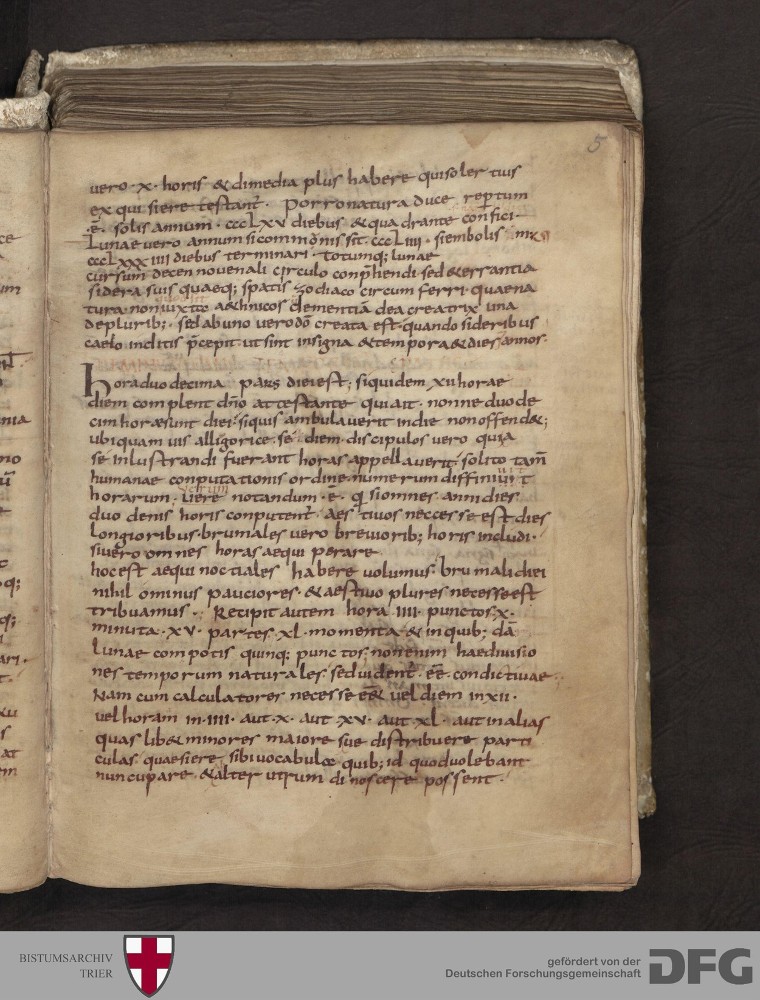 5
vero · x · horis & dimedia plus habere qui soler tius
ex qui siere testant̄ . Porro natura duce repertum
· ē · solis annum · ccclxv diebus & quadrante confici ·
Lunae vero annum si commonis sit cccliiii · si embolis
ccclxxxiiii diebus terminari · totumq; lunae
cursum decen novenali circulo conp̄hendi sed & errantia
sidera suis quaeq; spatis zodiaco circum ferri · quae na
tura non iuxta a&hnicos clementia dea creatrix una
de plurib; · sed ab uno vero dō creata est · quando sideribus
caelo inditis p̄cepit ut sint in signa & tempora & dies & annos ·
Hora duodecima pars diei est ; siquidem xii horae
diem complent dn̄o attestante qui ait · nonne duode
cim horae sunt diei · si quis ambulaverit in die non offend& ;
ubi quam vis alligorice · sé diem · discipulos vero qui a
se inlustrandi fuerant horas appellaverit solito tam̄
humanae conputationis ordine numerum diffinivit
horarum · vere notandum · ē · q̄ si omnes anni dies
duo denis horis conputent̄ · aestivos neccesse est dies
longioribus · brumales vero breviorib; horis includi ·
si vero omnes horas aequi perare
hoc est aequi noctiales habere volumus · brumali diei
nihil ominus pauciores · & aestivo plures necesse est
tribuamus · Recipit autem hora iiii · punctos · x ·
minuta · xv · partes xl · momenta & in quib; dā
Lunae compotis quinq; punctos · non enim hae divisio
nes temporum naturales · sed vident̄ · ēē · condictivae ·
Nam cum calculatores necesse ēē& vel diem in xii ·
vel horam in · iiii · aut · x · aut xv · aut xl · aut in alias
quas lib& minores maiore sve distribuere parti
culas quaesiere sibi vocabula quib; id quod volebant
nuncupare · & alter utrum dinoscere possent ·
BISTUMSARCHIV
TRIER
gefördert von der
Deutschen Forschungsgemeinschaft
DFG